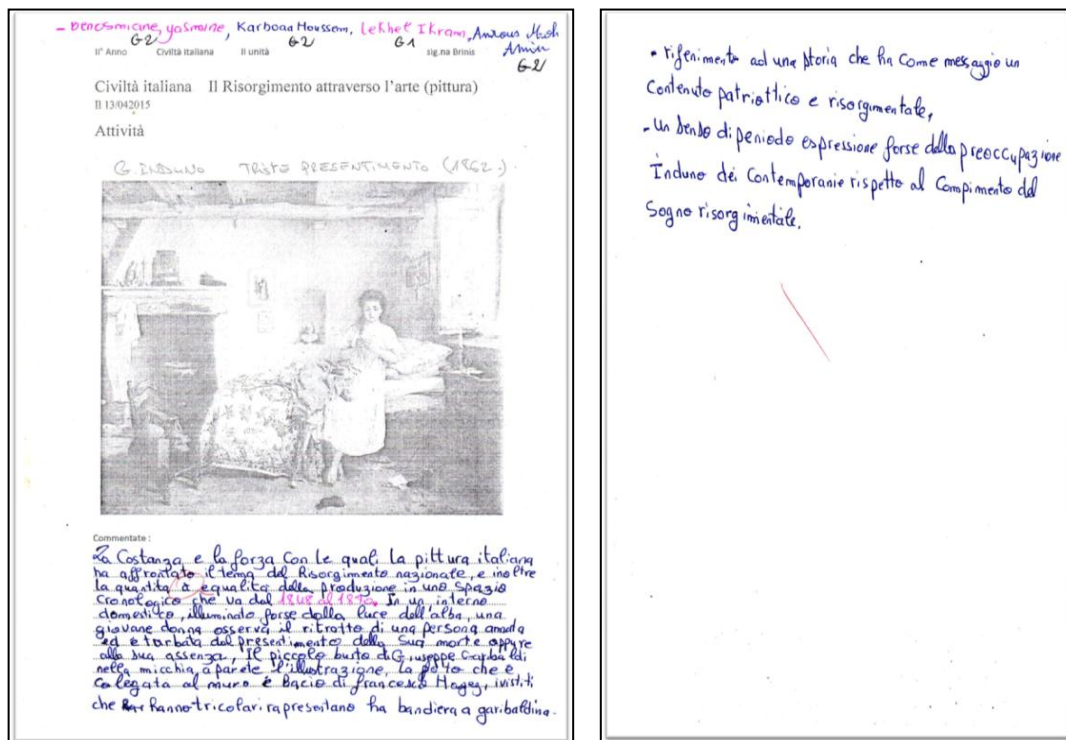 - Benosmicane, yasmine, Karboaa Houssem, Lekhel Ikram, Amrous Moh Amin
G2 G2 G1 G2
II° Anno Civiltà italiana II unità sig.na Brinis
Civiltà italiana Il Risorgimento attraverso l'arte (pittura)
Il 13/042015
Attività
G. INDUNO TRISTE PRESENTIMENTO (1862.)
Commentate :
La Costanza e la forza Con le quali la pittura italiana
ha affrontato il tema del Risorgimento nazionale, e inoltre
la quantità à equalità della produzione in uno spazio
cronologico che va dal 1848 al 1870. In un interno
domestico, illuminato forse dalla luce dell'alba, una
giovane donna osserva il ritratto di una persona amata
ed è turbata dal presentimento della Sua morte oppure
alla sua assenza, Il piccolo busto di Giuseppe Garibaldi
nella micchia, à parete l'illustrazione, la poto che è
Colegata al muro è Bacio di francesco Hayez, ivistiti
che hanno tricolari rapresentano ha bandiera garibaldina.
• riferimento ad una storia che ha Come messaggio un
Contenuto patriottico e risorgimentale,
- un senso di periodo espressione forse della preoccupazione
Induno dei Contemporanie rispetto al Compimento del
Sogno risorgimentale.